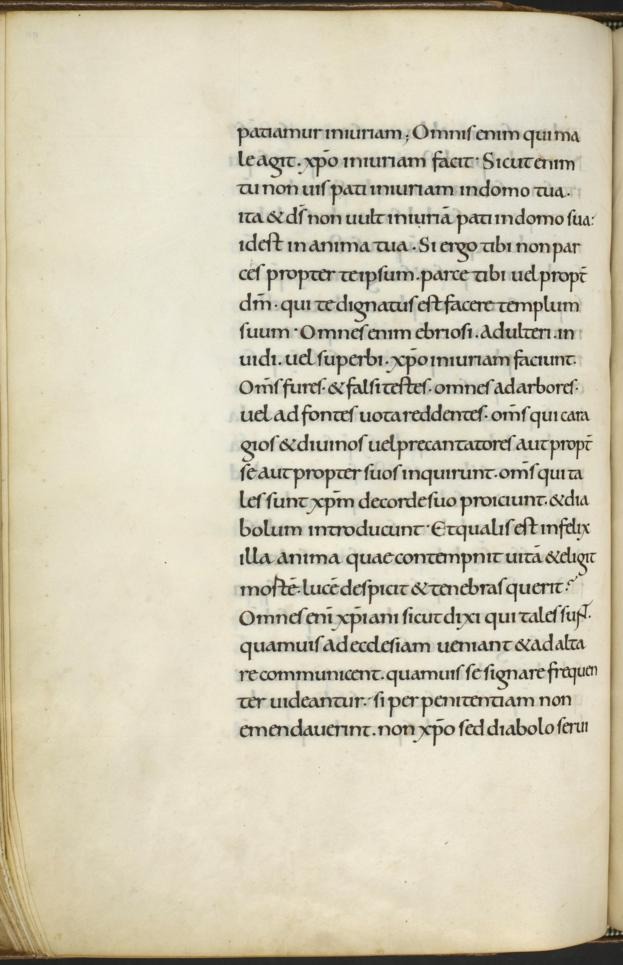 patiamur iniuriam; Omnis enim qui ma
le agit. xp̄o iniuriam facit· Sicut enim
tu non uis pati iniuriam in domo tua.
ita & ds̄ non uult iniuriā pati in domo sua:
idest in anima tua. Si ergo tibi non par
ces propter te ipsum. parce tibi uel propt̄
dm̄. qui te dignatus est facere templum
suum· Omnes enim ebriosi. Adulteri. in
uidi. uel superbi. xp̄o iniuriam faciunt.
Om̄s fures. & falsi testes. omnes ad arbores.
uel ad fontes uota reddentes. om̄s qui cara
gios & diuinos uel precantatores aut propt̄
se aut propter suos inquirunt. om̄s qui ta
les sunt xp̄m de corde suo proiciunt. & dia
bolum introducunt· Et qualis est infelix
illa anima quae contempnit uitā & eligit
mortē. lucē despicit & tenebras querit?
Omnes eni xp̄iani sicut dixi qui tales sunt.
quamuis ad ecclesiam ueniant & ad alta
re communicent. quamuis se signare frequen
ter uideantur. si per penitentiam non
emendauerint. non xp̄o sed diabolo serui